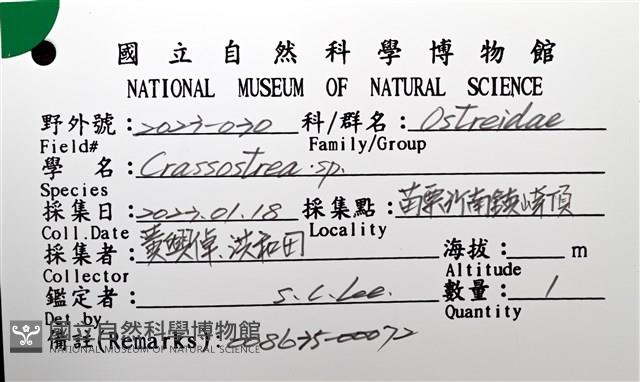 國立自然科學博物館
NATIONAL MUSEUM OF NATURAL SCIENCE
野外號：2023-030 科/群名：Ostreidae
Field# Family/Group
學 名：Crassostrea sp.
Species
採集日：2023.01.18 採集點：苗栗竹南鎮崎頂
Coll.Date Locality
採集者：黃興倬、洪和田 海拔：m
Collector Altitude
鑑定者：S.C.Lee. 數量：1
Det by Quantity
備註(Remarks)：008635-00072
國立自然科學博物館
NATIONAL MUSEUM OF NATURAL SCIENCE